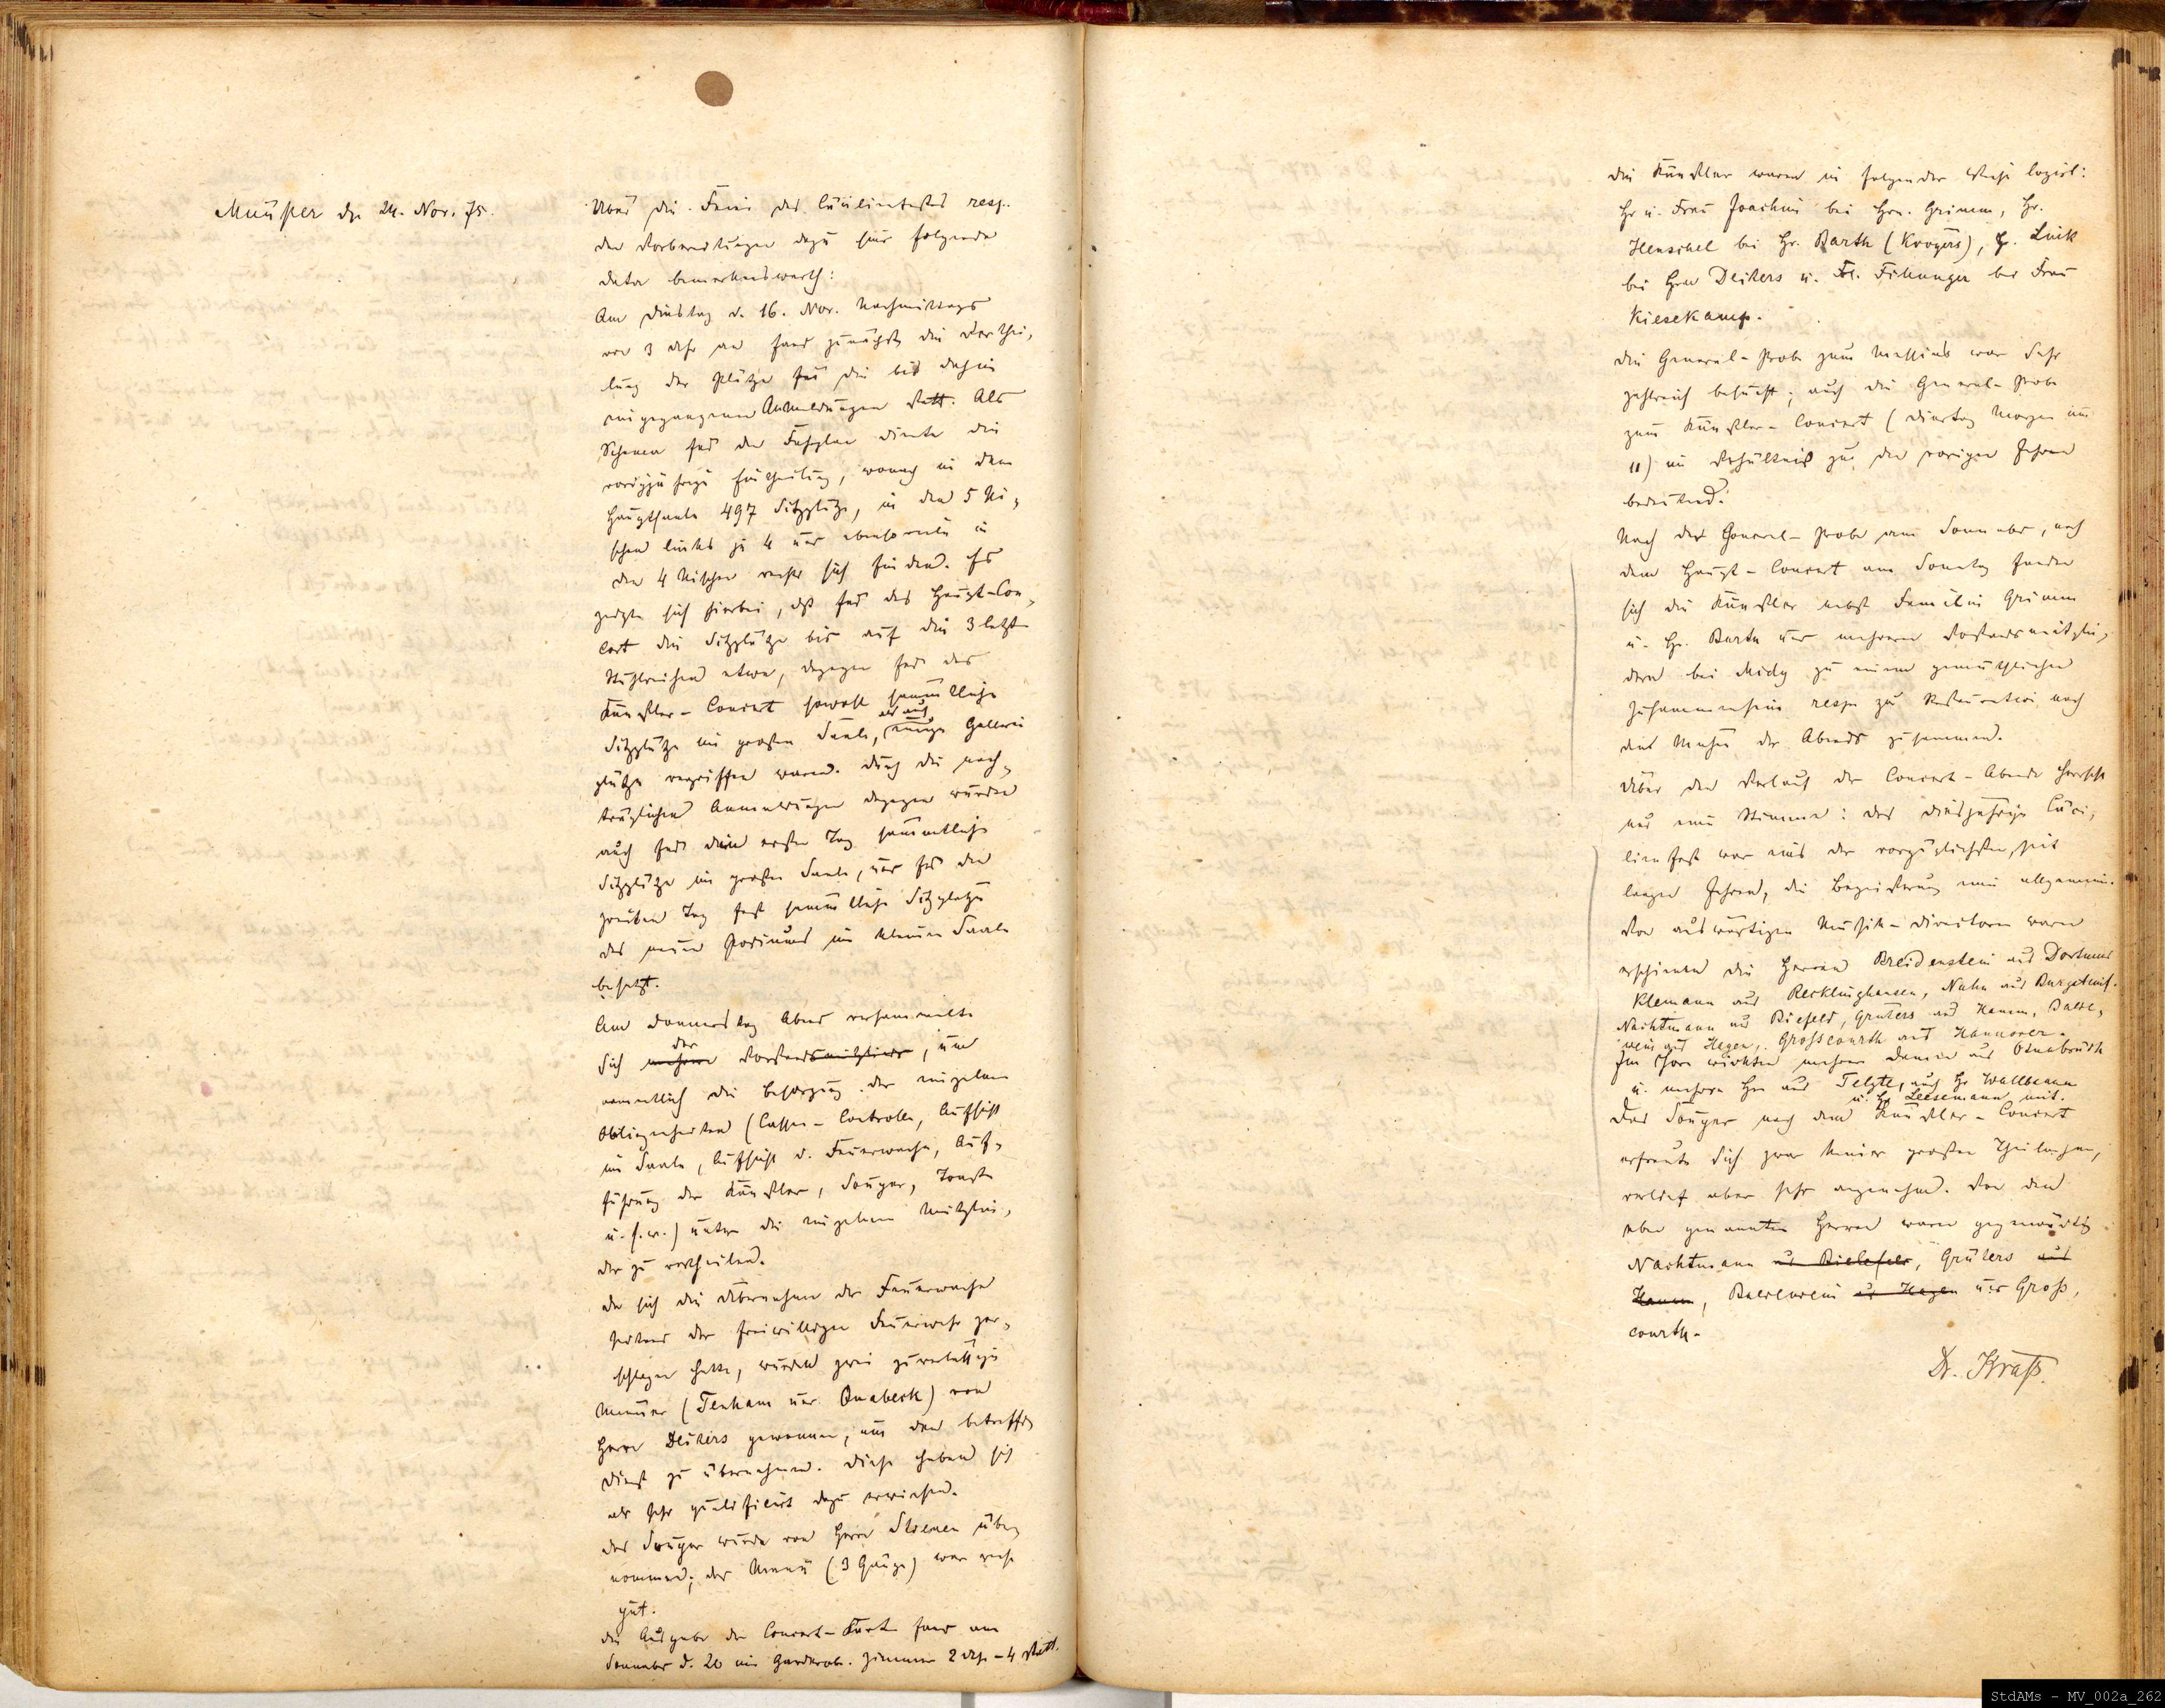 Münster den 24. Nov. 75.
Über die Feier des Cäcilienfestes resp.
der Vorbereitungen dazu sind folgende
Data bemerkenswerth:
Am Dinstag d. 16. Nov. Nachmittags
von 3 Uhr an fand zunächst die Verthei-
lung der Plätze für die bis dahin
eingegangenen Anmeldungen statt. Als
Schema für den Festplan diente die
vorigjährige Eintheilung, wonach in dem
Hauptsaale 497 Sitzplätze, in den 5 Ni-
schen links je 4 und ebensoviele in
den 4 Nischen rechts sich finden. Es
zeigte sich hierbei, daß für das Haupt-Con-
cert die Sitzplätze bis auf die 3 letzten
Stuhlreihen etwa, dagegen für das
Künstler-Concert sowohl sämmtliche
Sitzplätze im großen Saale, als auch einige Gallerie
plätze vergriffen waren. Durch die nach-
träglichen Anmeldungen dagegen wurden
auch für den ersten Tag sämmtliche
Sitzplätze im großen Saale, und für den
zweiten Tag fast sämmtliche Sitzplätze
des neuen Podiums im kleinen Saale
besetzt.
Am Donnerstag Abend versammelte
sich mehrere der Vorstandsmitglieder, um
namentlich die Besorgung der einzelnen
Obliegenheiten (Cassen-Controlle, Aufsicht
im Saale, Aufsicht d. Feuerwache, Auf-
führung der Künstler, Souper, Toaste
u. s. w.) unter die einzelnen Mitglie-
der zu vertheilen.
Da sich die Übernahme der Feuerwache
seitens der freiwilligen Feuerwehr zer-
schlagen hatte, wurden zwei zuverlässige
Männer (Tenham und Quabeck) von
Herrn Deiters gewonnen, um den betreffden
Dienst zu übernehmen. Diese haben sich
als sehr qualificirt dazu erwiesen.
Das Souper wurde von Herrn Stienen über-
nommen; das Menü (3 Gänge) war recht
gut.
Die Ausgabe der Concert-Karten fand am
Sonnabd d. 20 im Garderob. Zimmer 2 Uhr - 4 statt.
Die Künstler waren in folgender Weise logirt:
Hr u. Frau Joachim bei Hrn. Grimm, Hr.
Henschel bei Hr. Barth (Krögers), Hr. Link
bei Hrn Deiters u. Frl. Fillunger bei Frau
Kiesekamp.
Die General-Probe zum Messias war sehr
zahlreich besucht; auch die General-Probe
zum Künstler-Concert (Dinstag Morgen um
11) im Verhältniß zu den vorigen Jahren
bedeutend.
Nach der General-Probe am Sonnabd, nach
dem Haupt-Concert am Sonntag fanden
sich die Künstler nebst Familie Grimm
u. Hr. Barth und mehreren Vorstandsmitglie-
dern bei Midy zu einem gemüthlichen
Zusammensein resp. zur Restauration nach
des Mühen des Abends zusammen.
Über den Verlauf der Concert-Abende herrscht
nur eine Stimme: das diesjährige Cäci-
lienfest war eins der vorzüglichsten seit
langen Jahren, die Begeisterung eine allgemeine.
Von auswärtigen Musik-Directoren waren
erschienen die Herren Breidenstein aus Dortmund
Klemann aus Recklinghausen, Nuhn aus Burgsteinf.
Nachtmann aus Bielefeld, Grüters aus Hamm,
aus Hagen, Grosscourth aus Hannover.
Im Chore wirkten mehrere Damen aus Osnabrück
u. mehrere Hrn aus Telgte, auch Hr Wallbaum
u. Hr Leesemann mit.
Das Souper nach dem Künstler-Concert
erfreute sich zwar keiner großen Theilnahme,
verlief aber sehr angenehm. Von den
oben genannten Herren waren gegenwärtig
Nachtmann aus Bielefeld, Grüters aus
Hamm, aus Hagen und Gross-
courth.
Dr. Kraß.
StdAMs - MV_002a_262